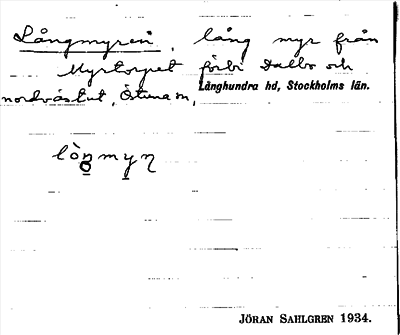 Långmyren, lång myr från
Myrtorpet förbi Dalbo och
nordväst ut, Östuna sn,
Långhundra hd, Stockholms län.
JÖRAN SAHLGREN 1934.